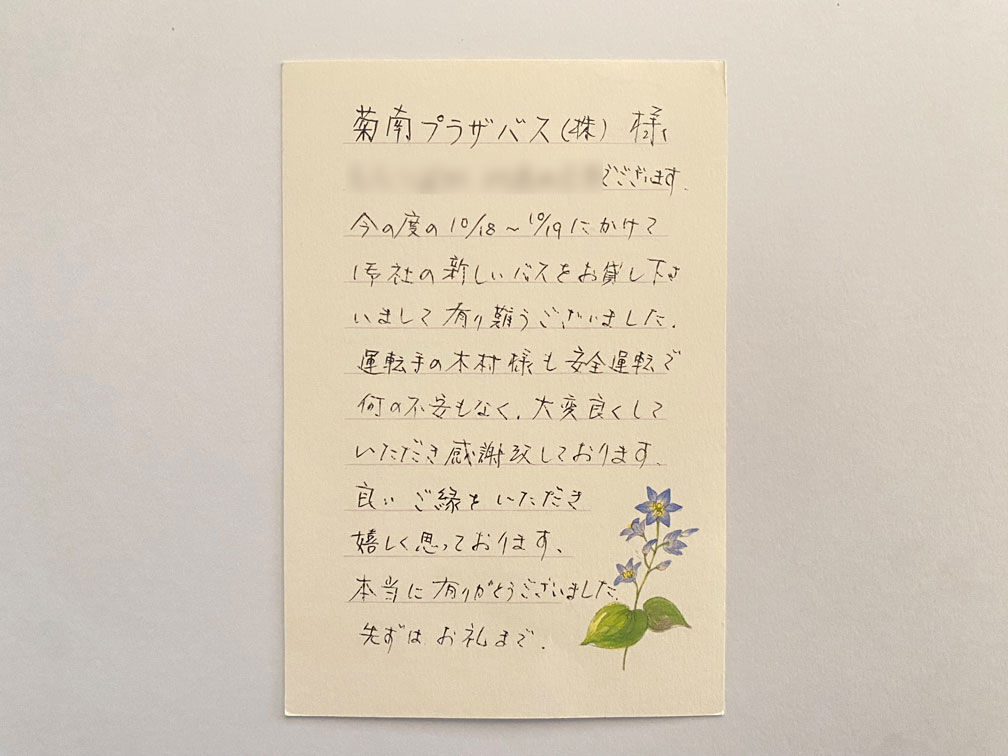 菊南プラザバス(株) 様
でございます。
今の度の10/18～10/19にかけて
御社の新しいバスをお貸し下さ
いまして有り難うございました.
運転手の木村様も安全運転で
何の不安もなく.大変良くして
いただき感謝致しております、
良い ご縁を いただき
嬉しく思っております、
本当に有りがとうございました.
先ずは お礼まで.